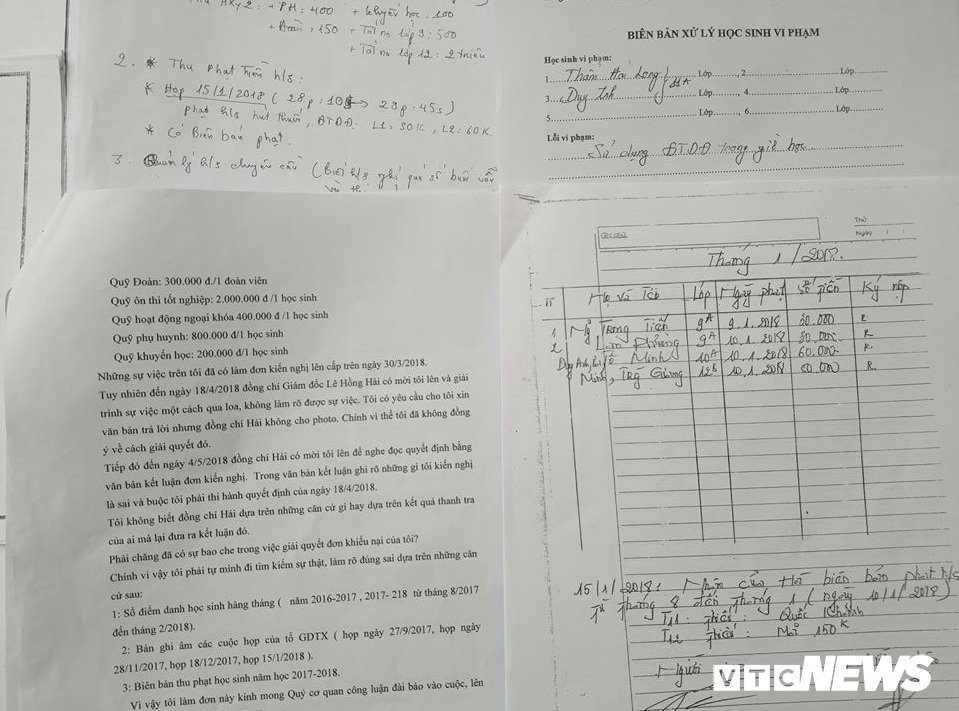 Thu HKy2: + PH: 400 + Khuyến học: 100
+ Đoàn: 150 + Tài trợ lớp 9: 500
+ Tài trợ lớp 12: 2 triệu
2. * Thu phạt tiền h/s:
Họp 15/1/2018 (28p:10s → 29p:45s)
phạt h/s hút thuốc, ĐTDĐ. L1 = 30K, L2 = 60K
* Có Biên bản phạt.
3. Quản lý h/s chuyên cần ( h/s nghỉ quá số buổi vẫn
BIÊN BẢN XỬ LÝ HỌC SINH VI PHẠM
Học sinh vi phạm:
1. Thân Hoi Long Lớp 2 Lớp
3. Duy Anh 11A Lớp , 4 Lớp
5 Lớp , 6 Lớp
Lỗi vi phạm:
Sử dụng ĐTDĐ trong giờ học
Quỹ Đoàn: 300.000 đ./1 đoàn viên
Quỹ ôn thi tốt nghiệp: 2.000.000 đ /1 học sinh
Quỹ hoạt động ngoại khóa 400.000 đ /1 học sinh
Quỹ phụ huynh: 800.000 đ/1 học sinh
Quỹ khuyến học: 200.000 đ/1 học sinh
Những sự việc trên tôi đã có làm đơn kiến nghị lên cấp trên ngày 30/3/2018.
Tuy nhiên đến ngày 18/4/2018 đồng chí Giám đốc Lê Hồng Hải có mời tôi lên và giải
trình sự việc một cách qua loa, không làm rõ được sự việc. Tôi có yêu cầu cho tôi xin
văn bản trả lời nhưng đồng chí Hải không cho photo. Chính vì thế tôi đã không đồng
ý về cách giải quyết đó.
Tiếp đó đến ngày 4/5/2018 đồng chí Hải có mời tôi lên để nghe đọc quyết định bằng
văn bản kết luận đơn kiến nghị. Trong văn bản kết luận ghi rõ những gì tôi kiến nghị
là sai và buộc tôi phải thi hành quyết định của ngày 18/4/2018.
Tôi không biết đồng chí Hải dựa trên những căn cứ gì hay dựa trên kết quả thanh tra
của ai mà lại đưa ra kết luận đó.
Phải chăng đã có sự bao che trong việc giải quyết đơn khiếu nại của tôi?
Chính vì vậy tôi phải tự mình đi tìm kiếm sự thật, làm rõ đúng sai dựa trên những căn
cứ sau:
1: Sổ điểm danh học sinh hàng tháng ( năm 2016-2017 , 2017- 218 từ tháng 8/2017
đến tháng 2/2018).
2: Bản ghi âm các cuộc họp của tổ GDTX ( họp ngày 27/9/2017, họp ngày
28/11/2017, họp 18/12/2017, họp 15/1/2018 ).
3: Biên bản thu phạt học sinh năm học 2017-2018.
Vì vậy tôi làm đơn này kính mong Quý cơ quan công luận đài báo vào cuộc, lên
Ghi chú
Thứ
Ngày / /
Tháng 1/2018.
TT Họ và Tên Lớp Ngày phạt Số tiền Ký nộp
1 Ng Trọng Tiến 9A 9.1.2018 30.000
2 Phương 9A 10.1.2018 30.000
Duy Anh, Minh 10A 10.1.2018 60.000
Minh, Trg Giang 12B 10.1.2018 60.000
15/1/2018: Nhận của Hà biên bản phạt h/s
Từ tháng 8 đến tháng 1 (ngày 10/1/2018)
T11 thiếu: Quốc Khánh
T12 thiếu: 150K
Người
VTC NEWS